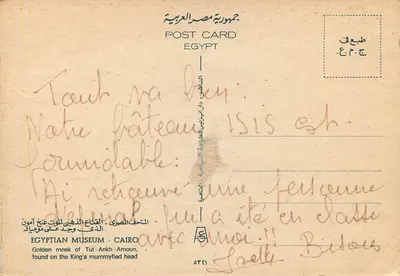 جمهورية مصر العربية
POST CARD
EGYPT
طبع فى
ج.م.ع.
Tout va bien.
Notre bâteau ISIS est
formidable.
Ai retrouvé une personne
qui a été en classe
avec moi !!
Bisous
المتحف المصرى - القناع الذهبى لتوت عنخ آمون
الذى وجد على موميائه
EGYPTIAN MUSEUM - CAIRO
Golden mask of Tut-Ankh-Amoun,
found on the King's mummyfied head
٥٣٢١